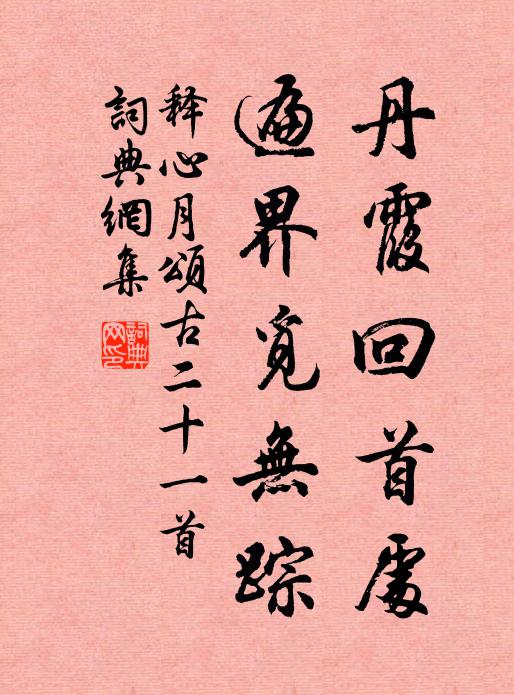 丹霞回首處
遍界覓無踪
释心月頌古二十一首
詞典網集
詞典網印